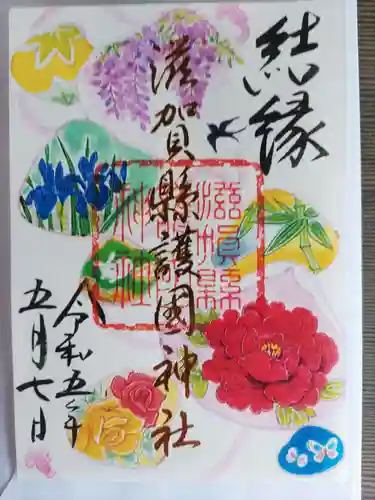 結縁
滋賀縣護國神社
滋賀縣
神社
令和五年
五月七日